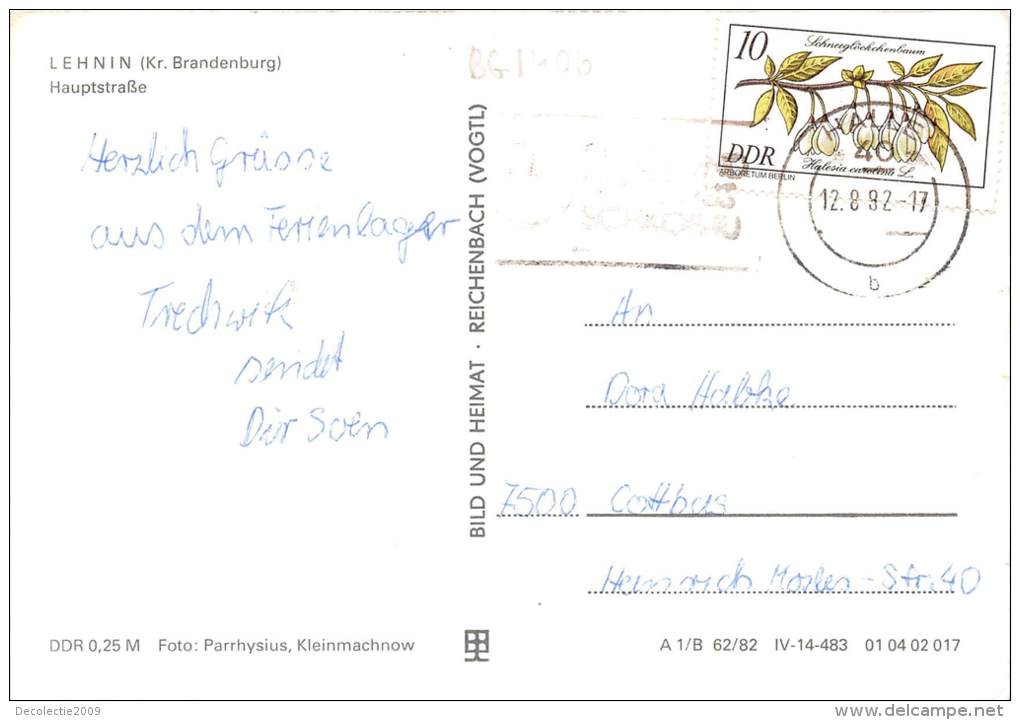 LEHNIN (Kr. Brandenburg)
Hauptstraße
Herzlich Grüsse
aus dem Ferienlager
Trechwitz
sendet
Dir Sven
BILD UND HEIMAT · REICHENBACH (VOGTL)
10
Schneeglöckchenbaum
DDR
Halesia carolina L.
ARBORETUM BERLIN
12.8.82-17
b
An
Dora Habke
7500 Cottbus
Str. 40
DDR 0,25 M Foto: Parrhysius, Kleinmachnow
A 1/B 62/82 IV-14-483 01 04 02 017
Decolectie2009